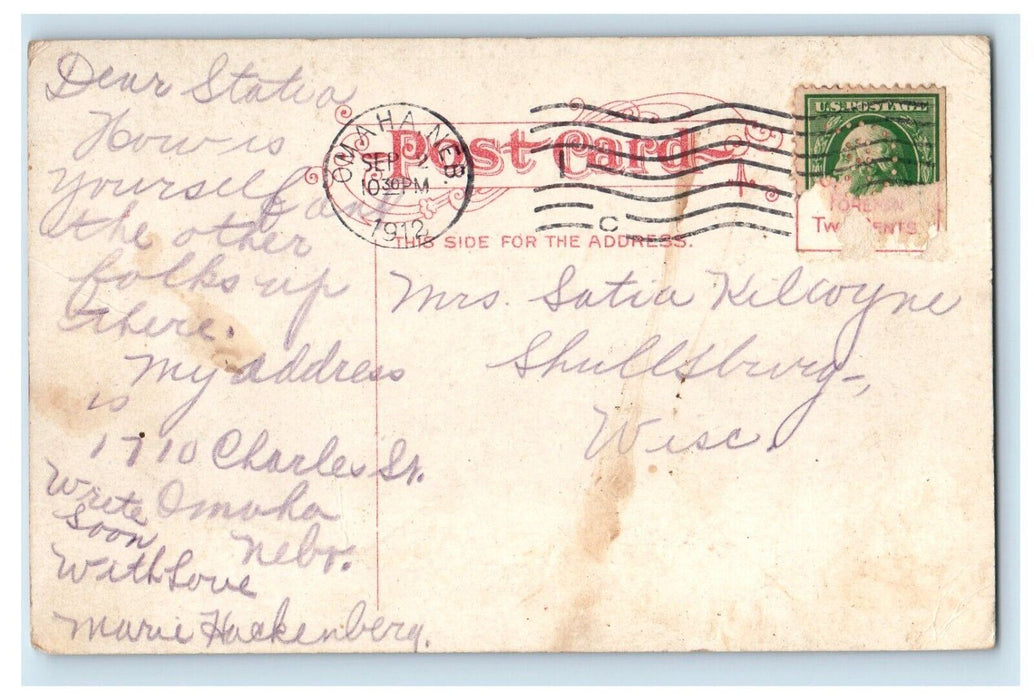 Dear Statia
How is
yourself and
the other
folks up
there.
My address
is
1710 Charles St.
Omaha
Nebr.
Write
Soon
With Love
Marie Hackenberg.
OMAHA, NEB.
SEP 2
10 30 PM
1912
C
Post Card
THIS SIDE FOR THE ADDRESS.
U.S. POSTAGE
TWO CENTS
Mrs. Satia Kilcoyne
Shullsburg,
Wisc.